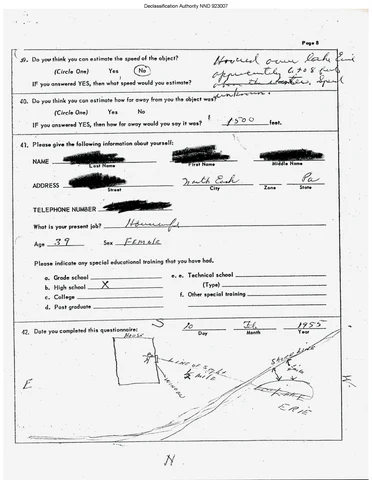 Declassification Authority NND 923007
Page 8
39. Do you think you can estimate the speed of the object?
(Circle One) Yes No
IF you answered YES, then what speed would you estimate?
Hovered over Lake Erie
apparently 6 to 8 feet
unknown.
40. Do you think you can estimate how far away from you the object was?
(Circle One) Yes No
IF you answered YES, then how far away would you say it was? 1500 feet.
41. Please give the following information about yourself:
NAME
Last Name First Name Middle Name
ADDRESS North East Pa
Street City Zone State
TELEPHONE NUMBER
What is your present job? Housewife
Age 39 Sex FEMALE
Please indicate any special educational training that you have had.
a. Grade school
b. High school X
c. College
d. Post graduate
e. e. Technical school
(Type)
f. Other special training
42. Date you completed this questionnaire: 10 Feb 1955
Day Month Year
S
House
WINDOW
Line of sight
1/2 mile
Shore Line
E
W
LAKE
ERIE
N